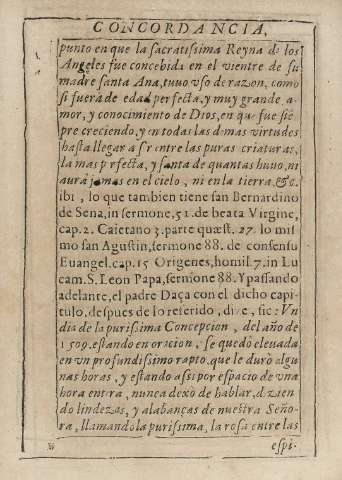 CONCORDANCIA,
punto en que la sacratissima Reyna de los
Angeles fue concebida en el vientre de su
madre santa Ana, tuuo vso de razon, como
si fuera de edad perfecta, y muy grande a-
mor, y conocimiento de Dios, en que fue siē
pre creciendo, y en todas las demas virtudes
hasta llegar a ser entre las puras criaturas,
la mas perfecta, y santa de quantas huuo, ni
aurà jamas en el cielo, ni en la tierra, &c.
ibi, lo que tambien tiene san Bernardino
de Sena, in sermone, 51. de beata Virgine,
cap. 2. Caietano 3. parte quæst. 27. lo mis
mo san Agustin, sermone 88. de consensu
Euangel. cap. 15 Origenes, homil. 7. in Lu
cam. S. Leon Papa, sermone 88. Y passando
adelante, el padre Daça con el dicho capi-
tulo, despues de lo referido, dize, sic: Vn
dia de la purissima Concepcion, del año de
1509. estando en oracion, se quedò eleuada
en vn profundissimo rapto, que le durò algu
nas horas, y estando assi por espacio de vna
hora entera, nunca dexò de hablar, dizien
do lindezas, y alabanças de nuestra Seño-
ra, llamandola purissima, la rosa entre las
espi-